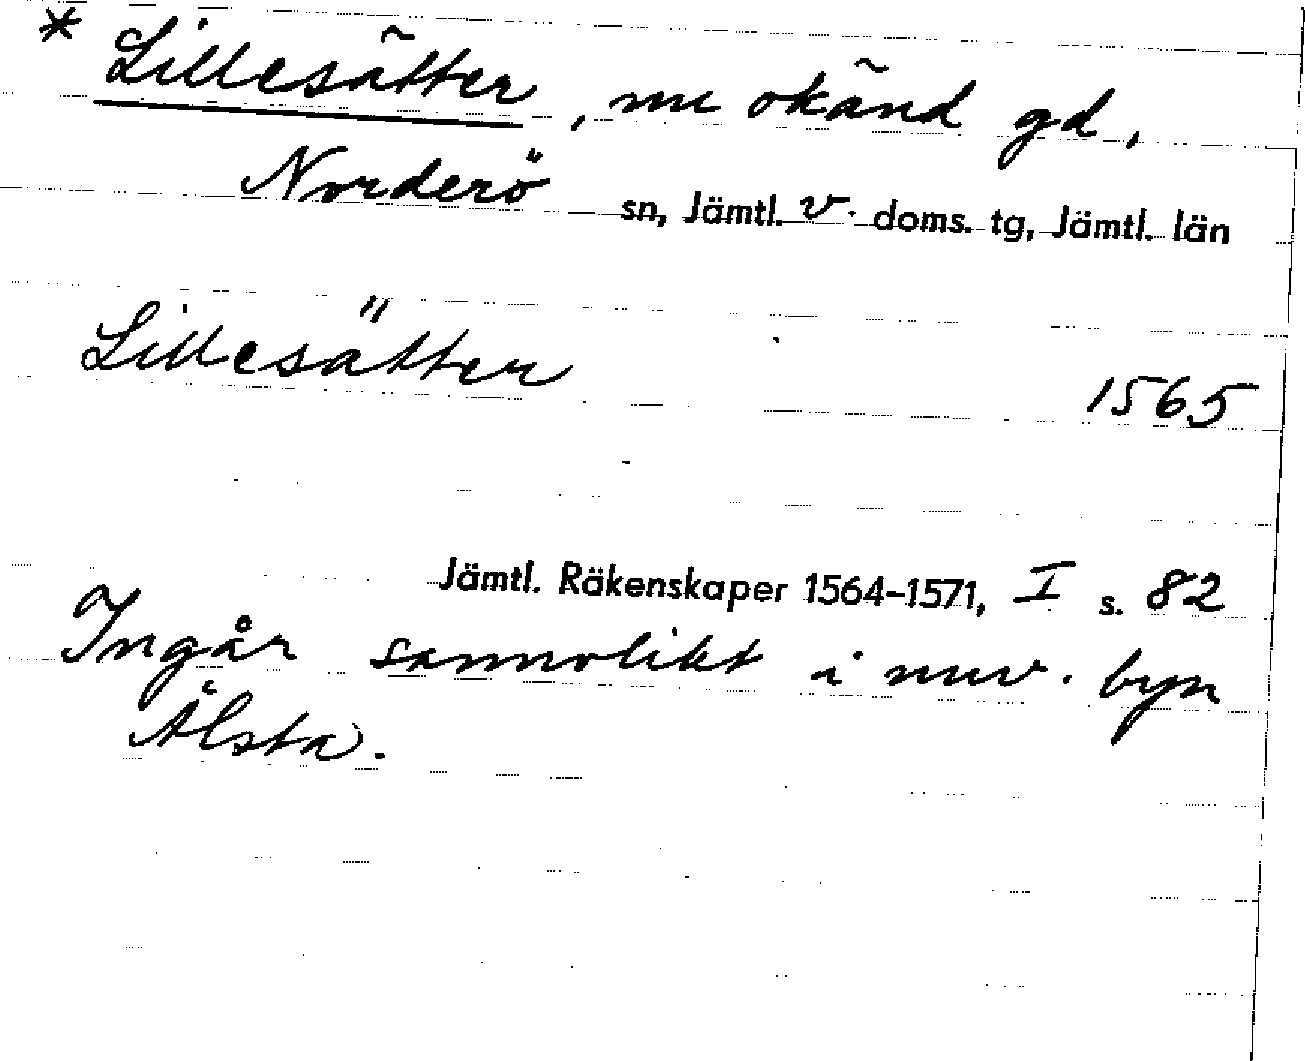 * Lillesätter, nu okänd gd,
Norderö sn, Jämtl. v. doms. tg, Jämtl. län
Lillesätter 1565
Jämtl. Räkenskaper 1564–1571, I s. 82
Ingår sannolikt i nuv. byn
Älsta.